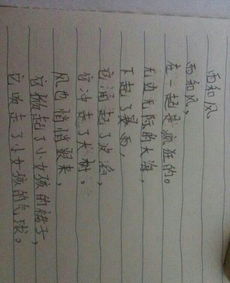 雨和风
雨和风,
在一起是疯狂的。
无边无际的大海,
下起了暴雨,
它涌起了波浪,
它冲走了大树。
风也悄悄跟来,
它掀起了小女孩的裙子,
它吹走了小女孩的气球。